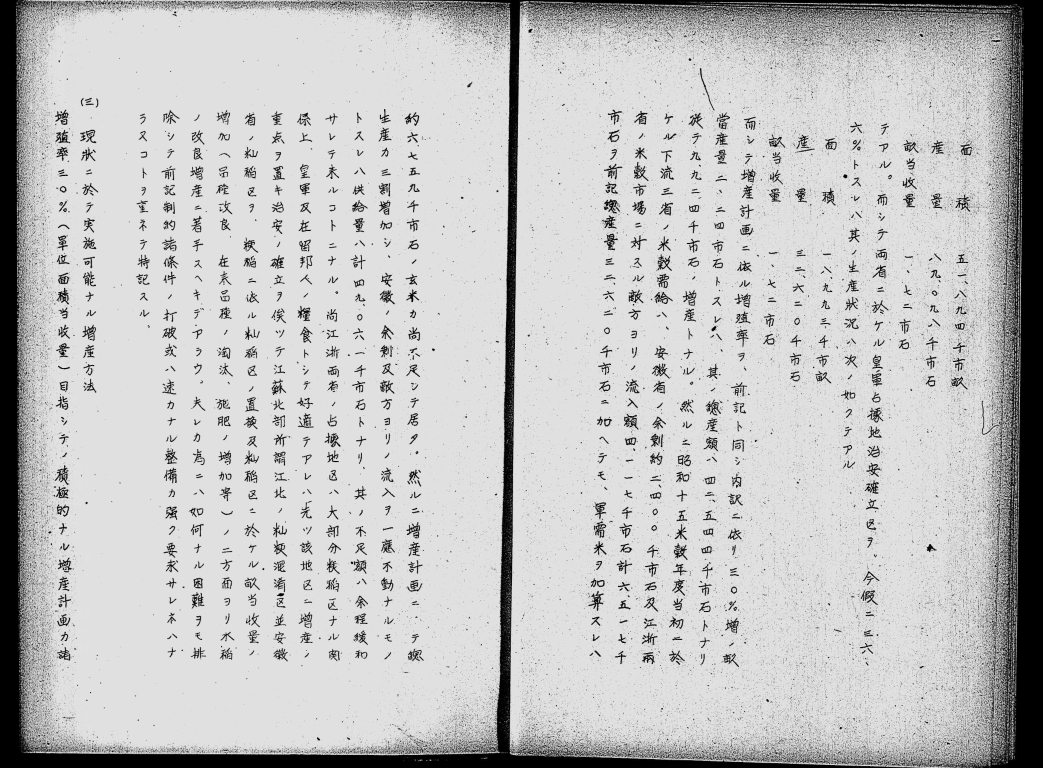 面積　五一、八九四千市畝
産量　八九、〇九八千市石
畝当收量　一、七二市石
テアル。而シテ両省ニ於ケル皇軍占據地治安確立区ヲ、今假ニ三六、
六％トスレハ其ノ生産狀況ハ次ノ如クテアル
面積　一八、九九三千市畝
産量　三二、六二〇千市石
畝当收量　一、七二市石
而シテ増産計画ニ依ル増殖率ヲ、前記ト同シ内訳ニ依リ三〇％増ノ畝
當産量二、二四市石トスレハ、其ノ總産額ハ四二、五四四千市石トナリ
從テ九、九二四千市石ノ増産トナル。然ルニ昭和十五米穀年度当初ニ於
ケル下流三省ノ米穀需給ハ、安徽省ノ余剰約二、四〇〇千市石及江浙両
省ノ米穀市場ニ対スル敵方ヨリノ流入額四、一一七千市石計六五一七千
市石ヲ前記總産量三二、六二〇千市石ニ加ヘテモ、軍需米ヲ加算スレハ
約六七五九千市石ノ玄米カ尚不足シテ居タ。然ルニ増産計画ニテ總
生産カ三割増加シ、安徽ノ余剰及敵方ヨリノ流入ヲ一應不動ナルモノ
トスレハ供給量ハ計四九、〇六一千市石トナリ、其ノ不足額ハ余程緩和
サレテ来ルコトニナル。尚江浙両省ノ占據地区ハ大部分粳稻区ナル関
係上、皇軍及在留邦人ノ糧食トシテ好適テアレハ先ツ該地区ニ増産ノ
重点ヲ置キ治安ノ確立ヲ俟ツテ江蘇北部所謂江北ノ籼粳混淆区並安徽
省ノ籼稻区ヲ、粳稻ニ依ル籼稻区ノ置換及籼稻区ニ於ケル畝当收量ノ
増加（品種改良、在来品種ノ淘汰、施肥ノ増加等）ノ二方面ヨリ水稻
ノ改良増産ニ著手スヘキデアラウ。夫レカ為ニハ如何ナル困難ヲモ排
除シテ前記制約諸條件ノ打破或ハ速カナル整備カ強ク要求サレネハナ
ラヌコトヲ重ネテ特記スル。
(三)　現狀ニ於テ実施可能ナル増産方法
増殖率三〇％（單位面積当收量）目指シテノ積極的ナル増産計画カ諸